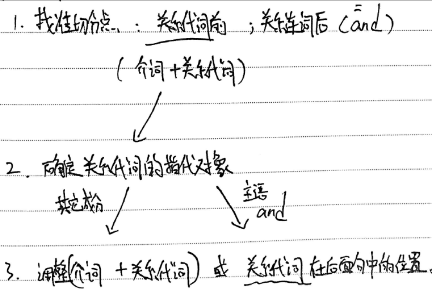 1. 找准切分点： 关系代词前 ；关系连词后（and）
（介词+关系代词）
2. 确定关系代词的指代对象
其它成分 主语
and
3. 调整(介词+关系代词) 或 关系代词在后面句中的位置。